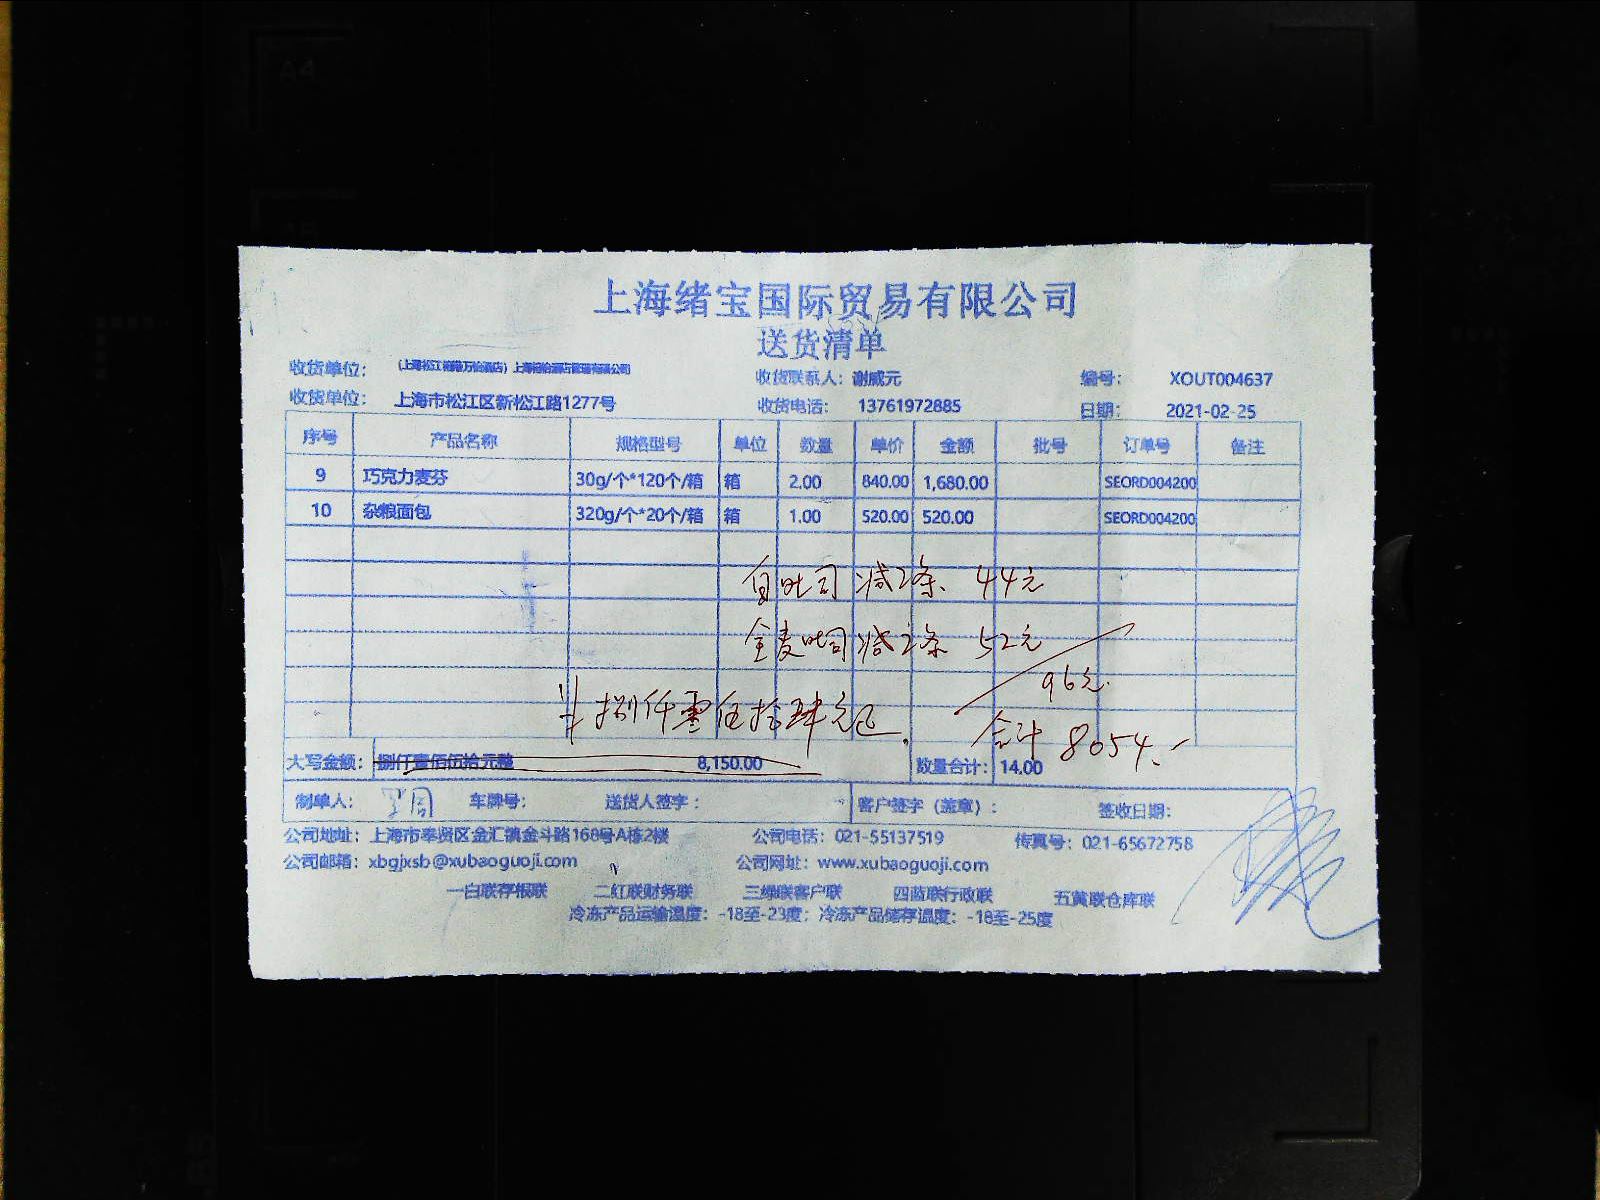 上海绪宝国际贸易有限公司
送货清单
收货单位： 收货联系人：谢威元 编号： XOUT004637
收货单位： 上海市松江区新松江路1277号 收货电话： 13761972885 日期： 2021-02-25
序号 产品名称 规格型号 单位 数量 单价 金额 批号 订单号 备注
9 巧克力麦芬 30g/个*120个/箱 箱 2.00 840.00 1,680.00 SEORD004200
10 杂粮面包 320g/个*20个/箱 箱 1.00 520.00 520.00 SEORD004200
白吐司 减2条、44元
全麦吐司 减2条 52元
96元.
捌仟零伍拾肆元正.
合计 8054.-
大写金额： 捌仟壹佰伍拾元整 8,150.00 数量合计： 14.00
制单人： 车牌号： 送货人签字： 客户签字（盖章）： 签收日期：
公司地址：上海市奉贤区金汇镇金斗路168号A栋2楼 公司电话：021-55137519 传真号：021-65672758
公司邮箱：xbgjxsb@xubaoguoji.com 公司网址：www.xubaoguoji.com
一白联存根联 二红联财务联 三绿联客户联 四蓝联行政联 五黄联仓库联
冷冻产品运输温度：-18至-23度；冷冻产品储存温度：-18至-25度